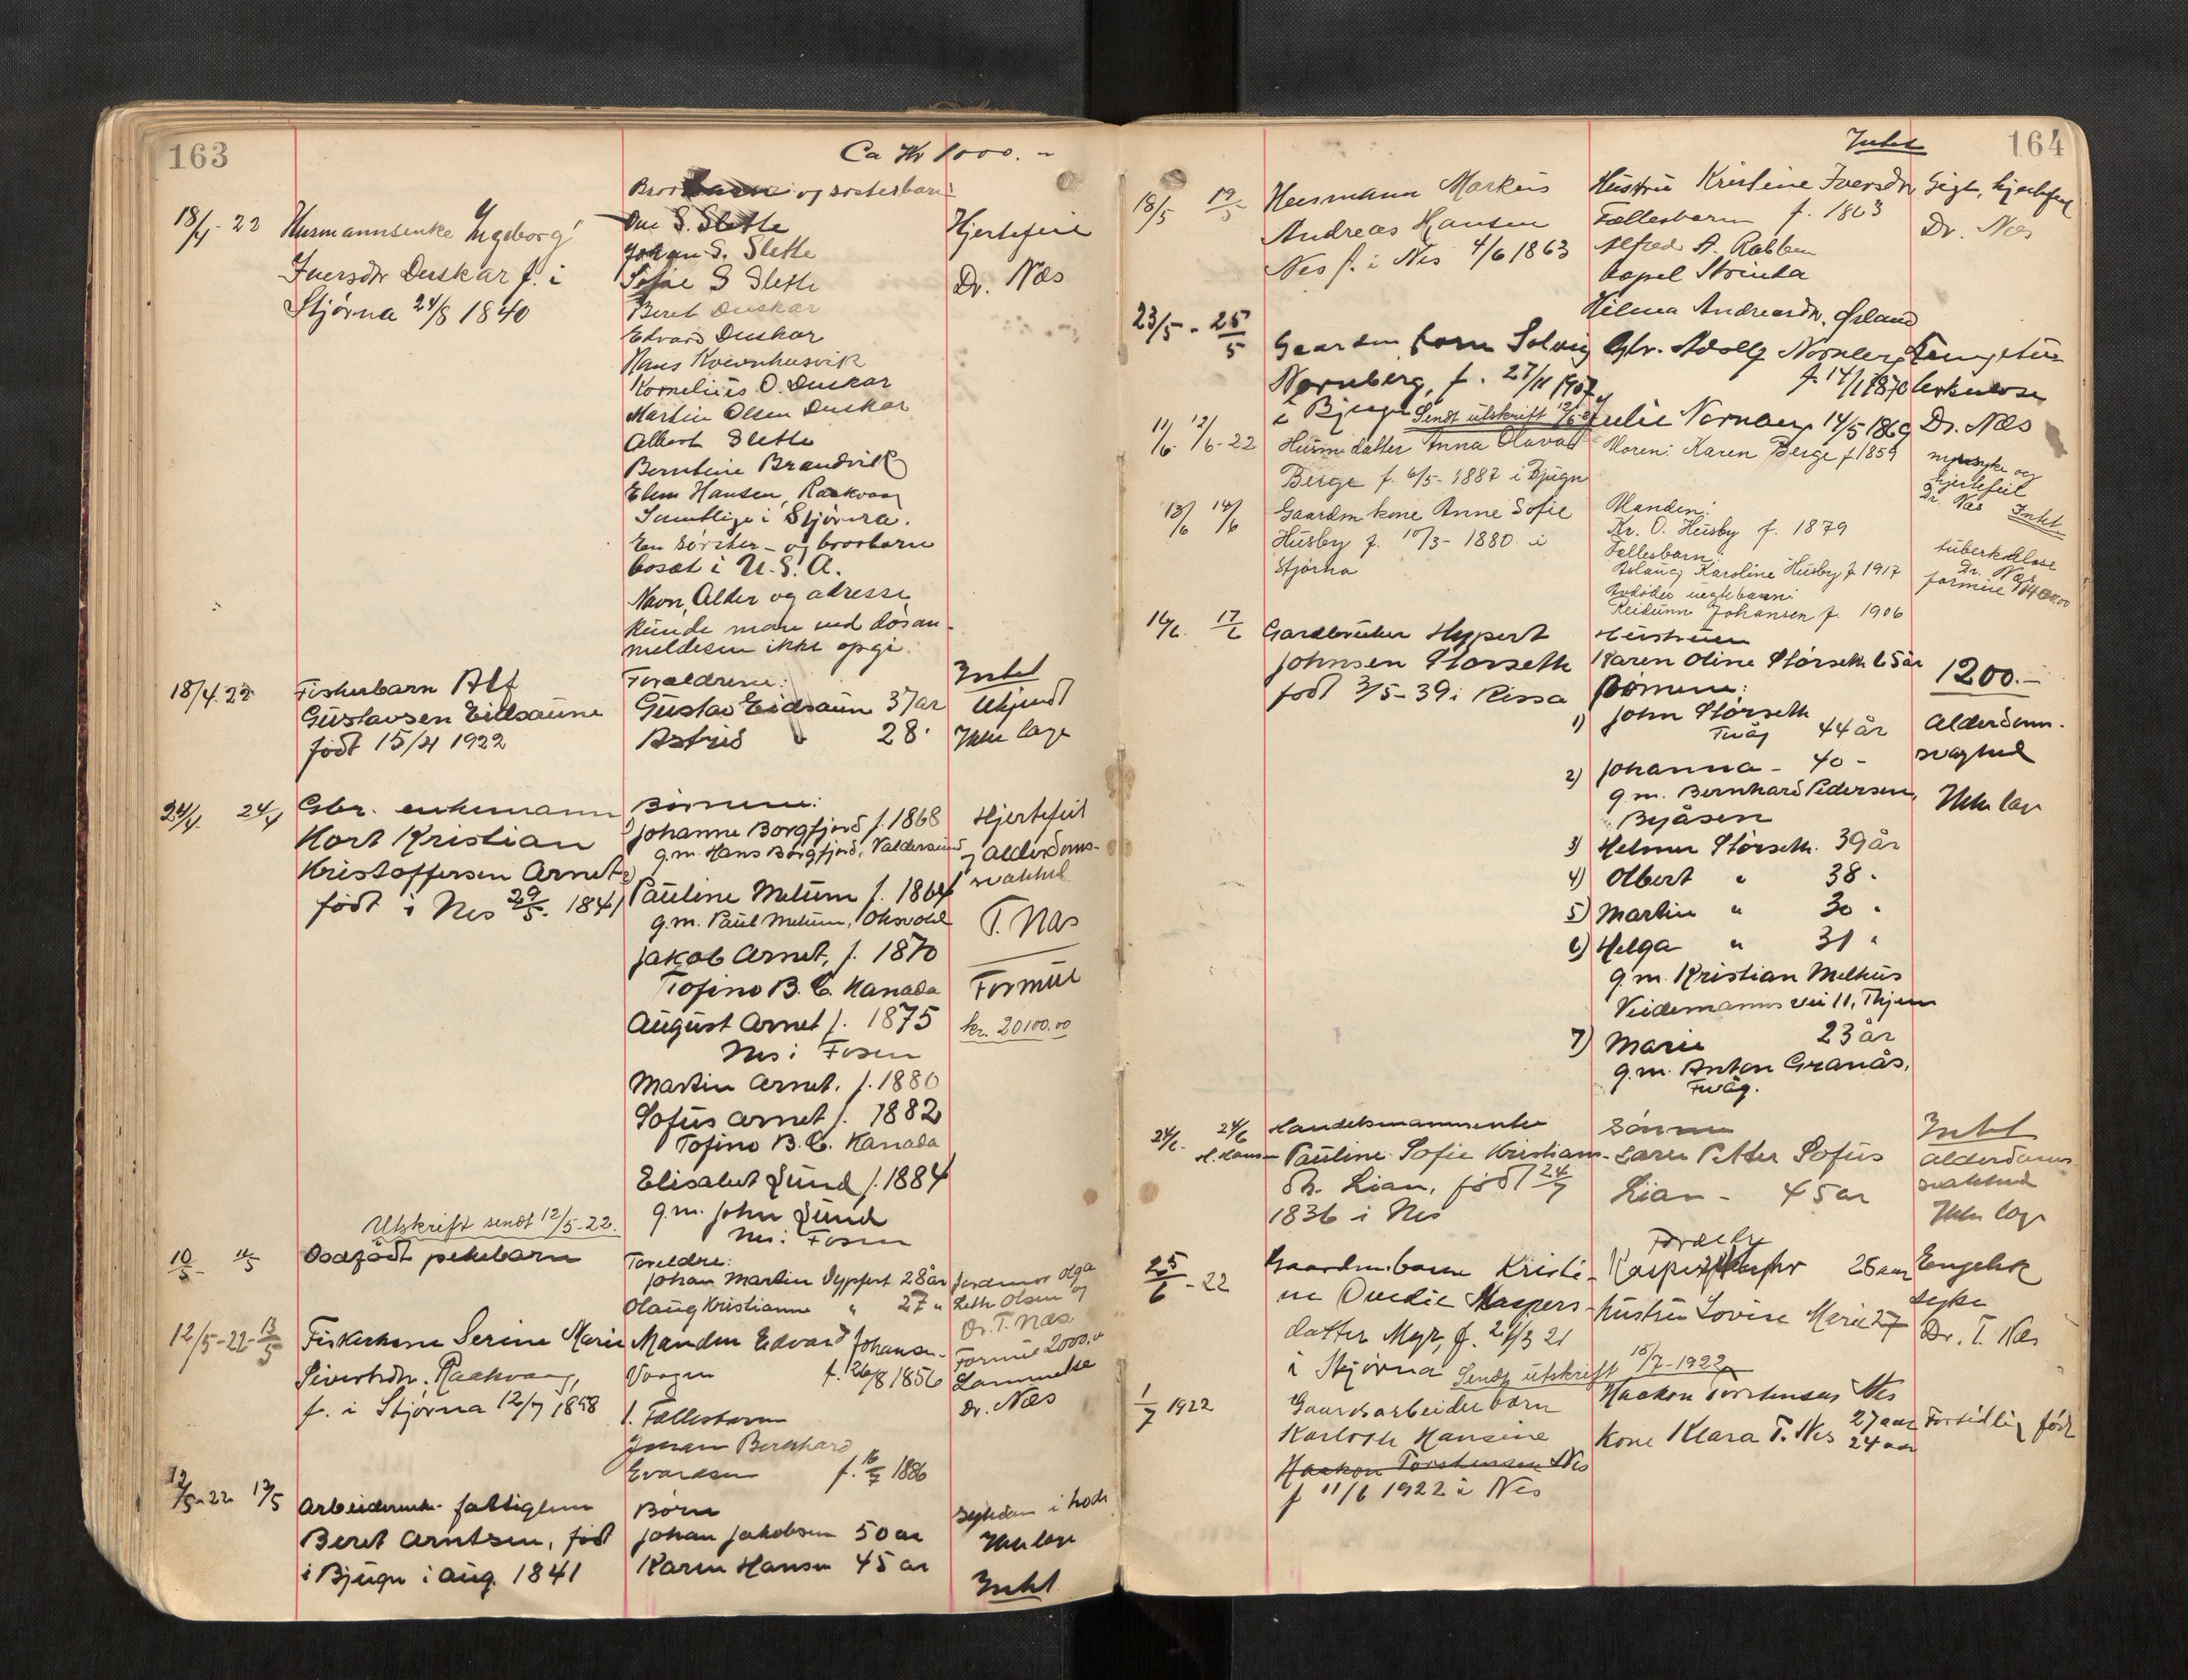 163
Ca Kr 1000. -
og søsterbarn
18/4-22 Husmannsenke Ingeborg
Iversdtr Duskar f. i
Stjørna 24/8 1840
Ane S. Slette
Johan S. Slette
Sofie S Slette
Beret Duskar
Edvard Duskar
Hans Kvernhusvik
Kornelius O. Duskar
Martin Olsen Duskar
Albert Slette
Berntine Brandvik
Elen Hansen, Raakvaag
Samtlige i Stjørna.
En søster- og brorbarn
bosat i U.S.A.
Navn, Alder og adresse
kunde man ved dødsan-
meldesen ikke opgi.
Hjertefeil
Dr. Næs
18/4-22 Fisherbarn Alf
Gustavsen Eidsaune
født 15/4 1922
Forældrene:
Gustav Eidsaun 37 ar
Astrid " 28 "
Intet
Ukjendt
Ikke læge
24/4. 24/4 Gbr. enkemann
Kort Kristian
Kristoffersen Arnet
født i Nes 29/5. 1841
Børnene:
1) Johanne Borgfjord f. 1868
g.m. Hans Borgfjord, Valdersund
2) Pauline Metum f. 1864
g.m. Paul Metum, Oksvold
Jakob Arnet, f. 1870
Tofino B.C. Kanada
August Arnet f. 1875
Nes i Fosen
Martin Arnet. f. 1880
Sofus Arnet f. 1882
Tofino B.C. Kanada
Elisabet Lund f. 1884
g.m. John Lund
Nes i Fosen
Hjertefeil
Alderdoms-
svakhet
T. Næs
Formue
kr. 20100.00
Utskrift sendt 12/5-22.
10/5- 11/5 Dødfødt pikebarn
Foreldre:
Johan Martin Sypfert 28 år
Olaug Kristianne " 27 "
Jordmor Olga
Leth Olsen og
Dr. T. Næs
12/5-22- 13/5 Fiskerkone Serine Marie
Sivertsdtr. Raakvaag,
f. i Stjørna 12/7 1858
Manden Edvard Johansen-
Vaagen f. 26/8 1856
1. Fællesbarn
Johan Bernhard
Evardsen f. 16/7 1886
Formue 2000.00
Lammelse
Dr. Næs
12/5-22 17/5 Arbeiderenk. fattiglem
Beret Arntsen, født
i Bjugn i aug. 1841
Børn
Johan Jakobsen 50 ar
Karen Hansen 45 ar
Sykdom i hode
Ikke læge
Intet
164
Intet
18/5 19/5 Husmann Markus
Andreas Hansen
Nes f. i Nes 4/6 1863
Hustru Kristine Iversdtr
Fællesbarn f. 1863
Alfred A. Rabben
Kapel Strinda
Hilma Andreasdtr. Ørland
Gigt, hjertefeil
Dr. Næs
23/5 - 25/5 Gaardm barn Solveig
Nornberg, f. 27/11 1907
i Bjugn Sendt utskrift
Gbr. Adolf Nornberg
f. 14/1 1870
Julie Nornberg 14/5 1869
Lungetu-
berkulose
Dr. Næs
11/6. 12/6-22 Husm datter Anna Olava
Berge f. 6/5-1887 i Bjugn
Moren: Karen Berge f 1859
nyresyke og
hjertefeil
Dr. Næs Intet
13/6 14/6 Gaardm kone Anne Sofie
Husby f. 10/3-1880 i
Stjørna
Manden:
Kr. O. Husby f. 1879
Fellesbarn:
Aslaug Karoline Husby f 1917
Avdødes uegte barn:
Reidunn Johansen f. 1906
tuberkulose
Dr. Næs
formue
16/6. 17/6 Gardbruker Hypert
Johnsen Størseth
født 3/5-39 i Rissa
Hustruen
Karen Oline Størseth 65 år
Børnene:
1) John Størseth
Fevåg 44 år
2) Johanna - 40 -
g.m. Bernhard Pedersen,
Byåsen
3) Helmer Størseth. 39 år
4) Olbert " 38 "
5) Martin " 30 "
6) Helga " 31 "
g.m. Kristian Melhus
Veidemanns vei 11, Thjem
7) Marie 23 år
g.m. Anton Granås,
Fevåg.
1200.-
Alderdom.
svaghed
Ikke læge
24/6- 24/6 Handelsmannsenke
H. Hansen Pauline Sofie Kristians-
dtr. Lian, født 24/7
1836 i Nes
Sønnen
Lars Petter Sofus
Lian - 45 ar
Intet
Alderdoms
svakhed
Ikke læge
25/6-22 Gaardm.barn Kristi-
ne Ovedie Kaspers-
datter Myr, f. 21/3 21
i Stjørna Sendt utskrift 15/7-1922
Forældre
Kasper 26 aar
hustru Lovise Marie 27
Engelsk
syke
Dr. T. Næs
1/7 1922 Gaardsarbeiderbarn
Karloth Hansine
Haakon Torstensen Nes
f 11/6 1922 i Nes
Haakon Torstensen Nes
27 aar
kone Klara T. Nes 24 aar
Fortidlig født